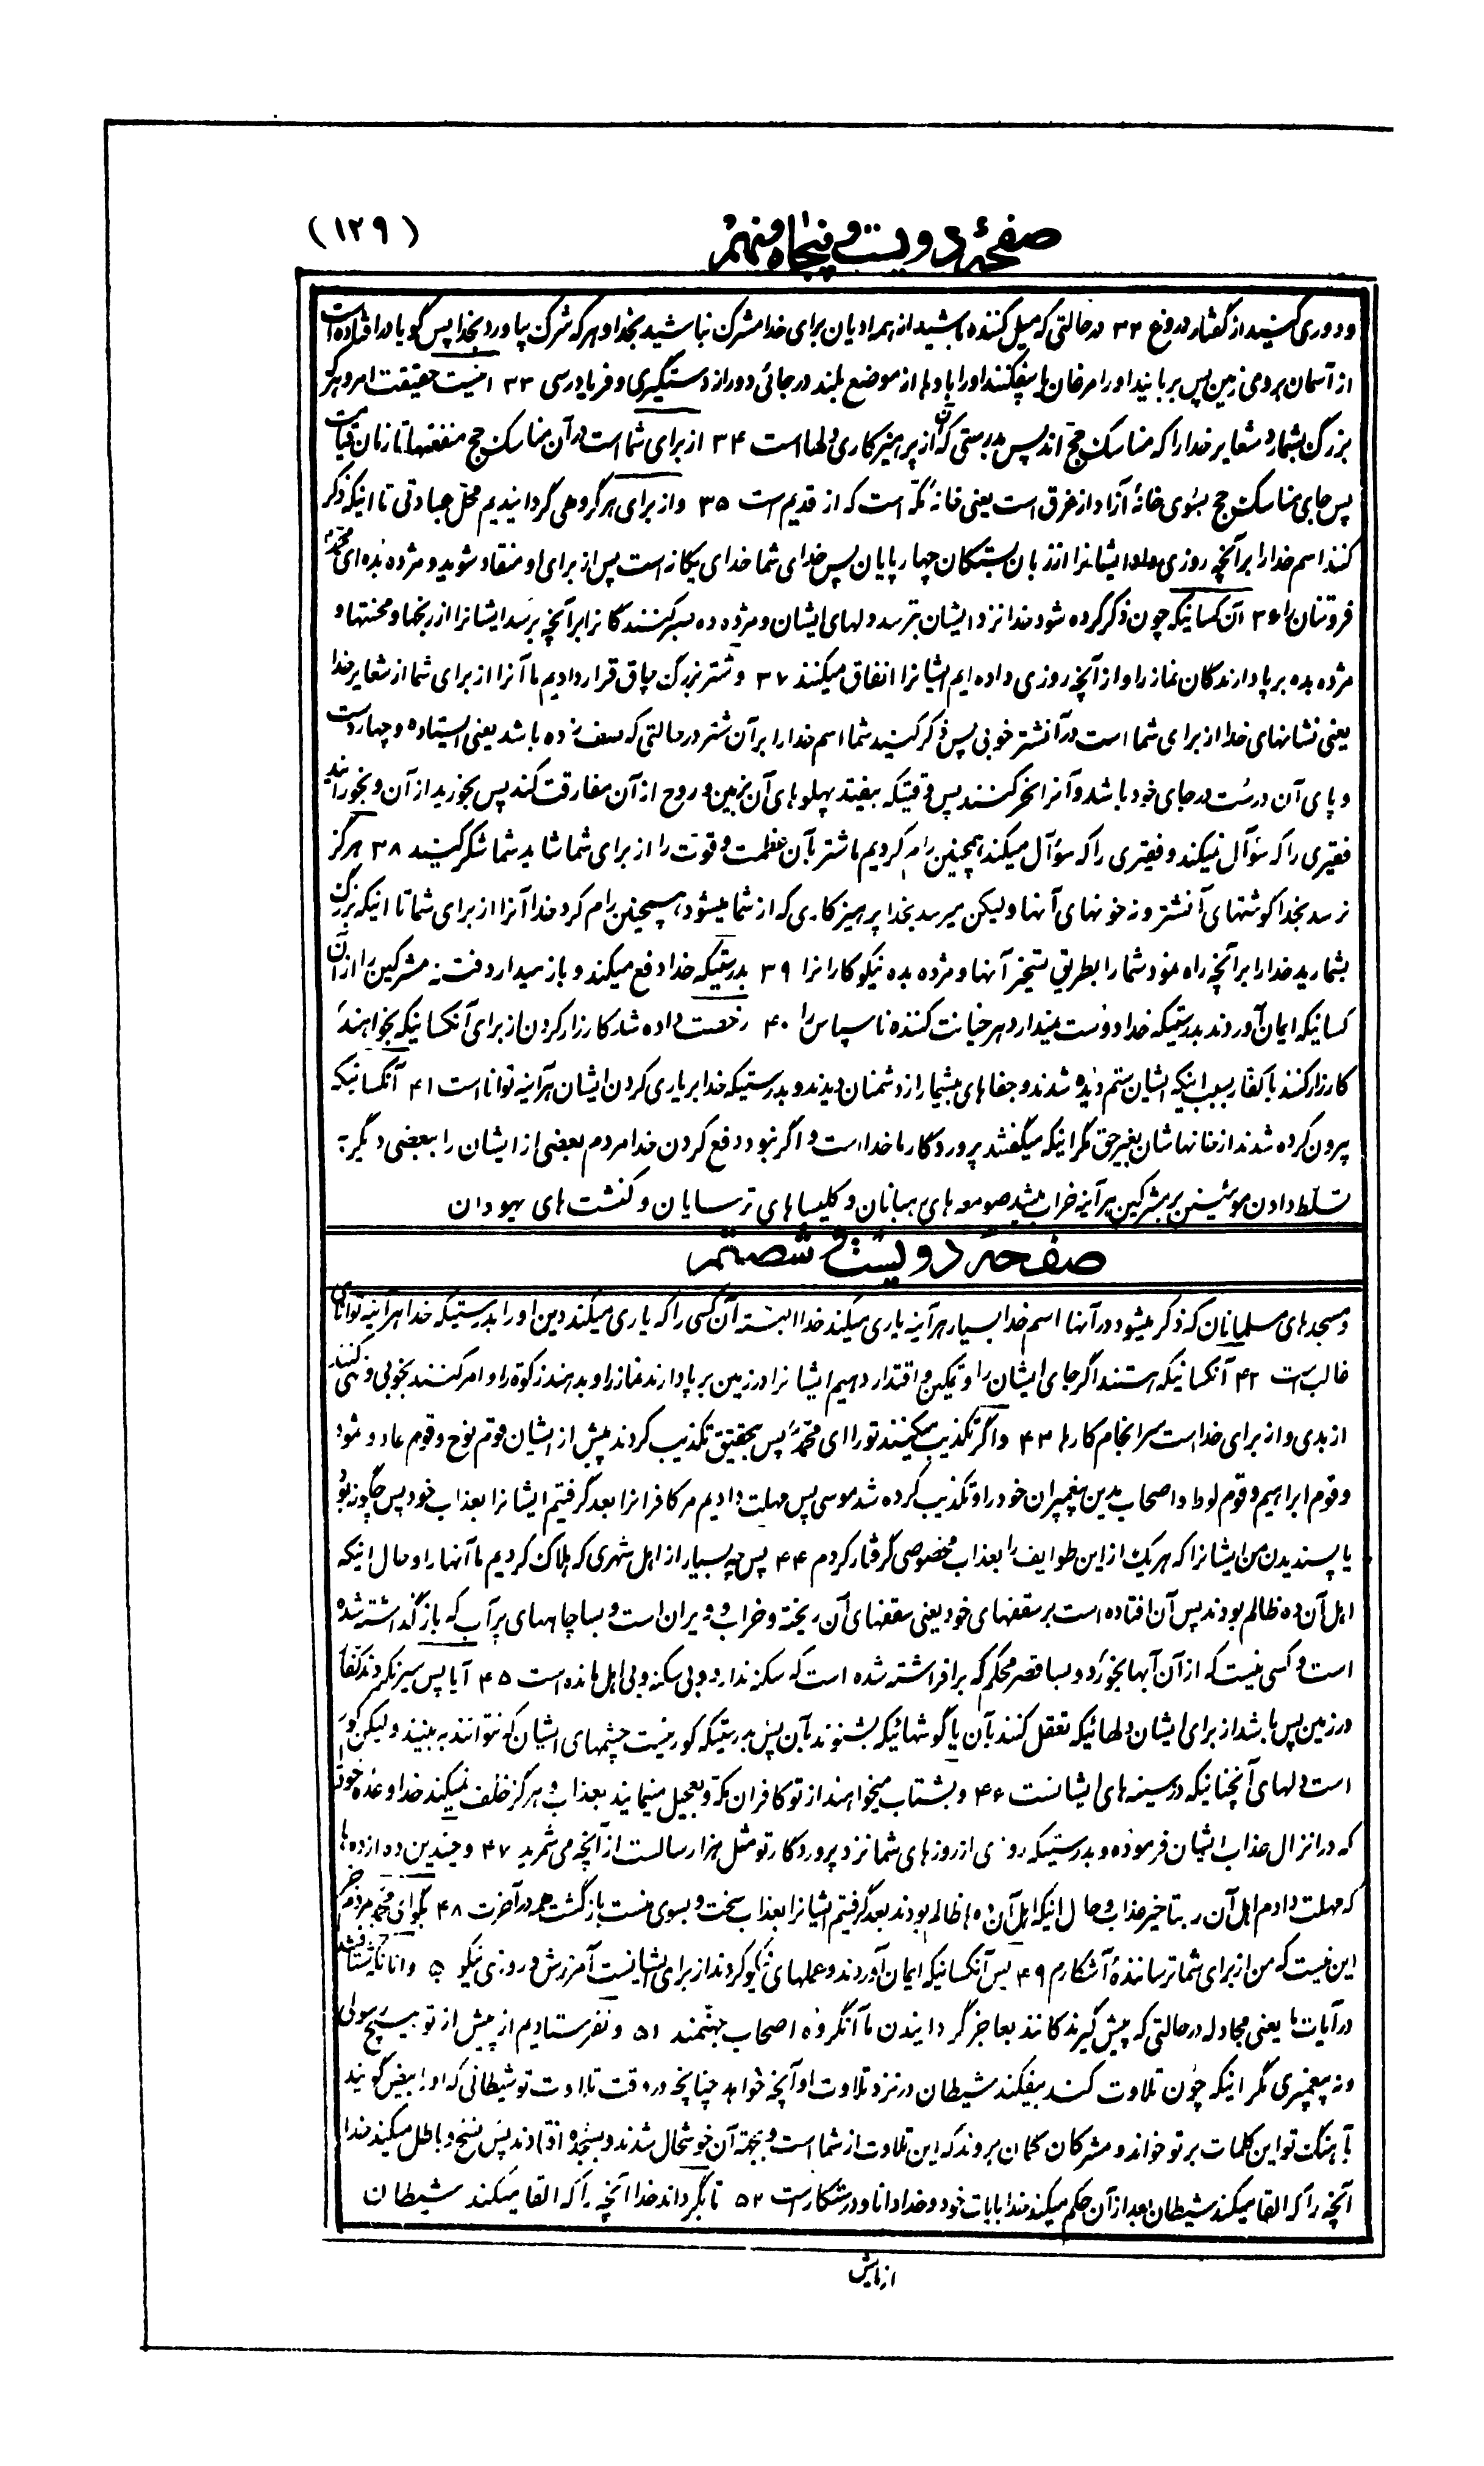 صفحهٔ دویست و پنجاه و نهم (۱۲۹)
و دوری کنید از گفتار دروغ ۳۲ در حالتی که میل کننده باشید از همه ادیان برای خدا مشرک نباشید بخدا و هر که شرک بیاورد بخدا پس گویا در افتاده است
از آسمان بروی زمین پس بربایند او را مرغان یا بیفکند او را باد ها از موضع بلند در جائی دور از دستگیری و فریادرسی ۳۳ اینست حقیقت امر و هر که
بزرگ بشمارد شعایر خدا را که مناسک حج اند پس بدرستی که آن از پرهیزکاری دلها است ۳۴ از برای شما است در آن مناسک حج منفعتها تا زمان قیامت
پس جای مناسک حج بسوی خانهٔ آزاد از غرق است یعنی خانهٔ مکه است که از قدیم است ۳۵ و از برای هر گروهی گردانیدیم محل عبادتی تا اینکه ذکر
کنند اسم خدا را بر آنچه روزی داد ایشانرا از زبان بستگان چهارپایان پس خدای شما خدای یگانه است پس از برای او منقاد شوید و مژده بده ای محمد
فروتنان را ۳۶ آن کسانیکه چون ذکر کرده شود خدا نزد ایشان بترسد دلهای ایشان و مژده ده صبر کنندگانرا بر آنچه برسد ایشانرا از رنجها و محنتها و
مژده بده برپا دارندگان نماز را و از آنچه روزی داده ایم ایشانرا انفاق میکنند ۳۷ و شتر بزرگ چاق قرار دادیم ما آنرا از برای شما از شعایر خدا
یعنی نشانهای خدا از برای شما است در آنشتر خوبی پس ذکر کنید شما اسم خدا را بر آن شتر در حالتی که صف زده باشد یعنی ایستاده و چهار دست
و پای آن درست در جای خود باشد و آنرا نحر کنند پس وقتیکه بیفتد پهلوهای آن بزمین و روح از آن مفارقت کند پس بخورید از آن و بخورانید
فقیری را که سؤال نمیکند و فقیری را که سؤال میکند همچنین رام کردیم ما شتر بآن عظمت و قوت را از برای شما شاید شما شکر کنید ۳۸ هرگز
نرسد بخدا گوشتهای آنشتر و نه خونهای آنها ولیکن میرسد بخدا پرهیزکاری که از شما میشود همچنین رام کرد خدا آنرا از برای شما تا اینکه بزرگ
بشمارید خدا را بر آنچه راه نمود شما را بطریق تسخیر آنها و مژده بده نیکوکارانرا ۳۹ بدرستیکه خدا دفع میکند و باز میدارد فتنه مشرکین را از آن
کسانیکه ایمان آوردند بدرستیکه خدا دوست نمیدارد هر خیانت کننده ناسپاس را ۴۰ رخصت داده شد کارزار کردن از برای آنکسانیکه بخواهند
کارزار کنند با کفار بسبب اینکه ایشان ستم دیده شدند و جفاهای بیشمار از دشمنان دیدند و بدرستیکه خدا بر یاری کردن ایشان هرآینه توانا است ۴۱ آنکسانیکه
بیرون کرده شدند از خانهاشان بغیر حق مگر اینکه میگفتند پروردگار ما خدا است و اگر نبود دفع کردن خدا مردم بعضی از ایشان را ببعضی دیگر به
تسلط دادن مؤمنین بر مشرکین هرآینه خراب میشد صومعه های رهبانان و کلیساهای ترسایان و کنشت های یهودان
صفحه دویست و شصتم
و مسجدهای مسلمانان که ذکر میشود در آنها اسم خدا بسیار هرآینه یاری میکند خدا البته آن کسی را که یاری میکند دین او را بدرستیکه خدا هرآینه توانای
غالب است ۴۲ آنکسانیکه هستند اگر جای ایشان را و تمکین و اقتدار دهیم ایشانرا در زمین برپا دارند نماز را و بدهند زکوة را و امر کنند بخوبی و نهی کنند
از بدی و از برای خدا است سرانجام کارها ۴۳ و اگر تکذیب میکنند تو را ای محمد پس بتحقیق تکذیب کردند پیش از ایشان قوم نوح و قوم عاد و ثمود
و قوم ابراهیم و قوم لوط و اصحاب مدین پیغمبران خود را و تکذیب کرده شد موسی پس مهلت دادیم مر کافرانرا بعد گرفتیم ایشانرا بعذاب خود پس چگونه بود
یا پسندیدن من ایشانرا که هر یک از این طوایف را بعذاب مخصوصی گرفتار کردم ۴۴ پس چه بسیار از اهل شهری که هلاک کردیم ما آنها را و حال اینکه
اهل آن ده ظالم بودند پس آن افتاده است بر سقفهای خود یعنی سقفهای آن ریخته و خراب و ویران است و بسا چاههای پر آب که بازگذاشته شده
است و کسی نیست که از آن آبها بخورد و بسا قصر محکم که برافراشته شده است که سکنه ندارد و بی سکنه و بی اهل مانده است ۴۵ آیا پس سیر نکردند کفار
در زمین پس باشد از برای ایشان دلهائیکه تعقل کنند بآن یا گوشهائیکه بشنوند بآن پس بدرستیکه کور نیست چشمهای ایشان که نتوانند به بینند ولیکن کور
است دلهای آنچنانیکه در سینه های ایشانست ۴۶ و بشتاب میخواهند از تو کافران مکه و تعجیل مینمایند بعذاب و هرگز خلف نمیکند خدا وعده خود را
که در انزال عذاب ایشان فرموده و بدرستیکه روزی از روزهای شما نزد پروردگار تو مثل هزار سالست از آنچه می شمرید ۴۷ و چندین ده از ده ها
که مهلت دادم اهل آن را بتاخیر عذاب و حال اینکه اهل آن ده ها ظالم بودند بعد گرفتیم ایشانرا بعذاب سخت و بسوی منست بازگشت همه در آخرت ۴۸ بگو ای محمد مردم جز
این نیست که من از برای شما ترسانندهٔ آشکارم ۴۹ پس آنکسانیکه ایمان آوردند و عملهای نیکو کردند از برای ایشانست آمرزش و روزی نیکو ۵۰ و آنانکه شتافتند
در آیات ما یعنی مجادله در حالتی که پیش گیرندگانند بعاجز گردانیدن ما آنگروه اصحاب جهنمند ۵۱ و نفرستادیم از پیش از تو هیچ رسولی
و نه پیغمبری مگر اینکه چون تلاوت کند بیفکند شیطان در نزد تلاوت او آنچه خواهد چنانچه در وقت تلاوت تو شیطانی که او را ابیض گویند
بآهنگ تو این کلمات بر تو خواند و مشرکان گمان بردند که این تلاوت از شما است و بجهته آن خوشحال شدند و بسجده افتادند پس نسخ و باطل میکند خدا
آنچه را که القا میکند شیطان بعد از آن حکم میکند خدا بایات خود و خدا دانا و درستکار است ۵۲ تا بگرداند خدا آنچه را که القا میکند شیطان
ازمایش